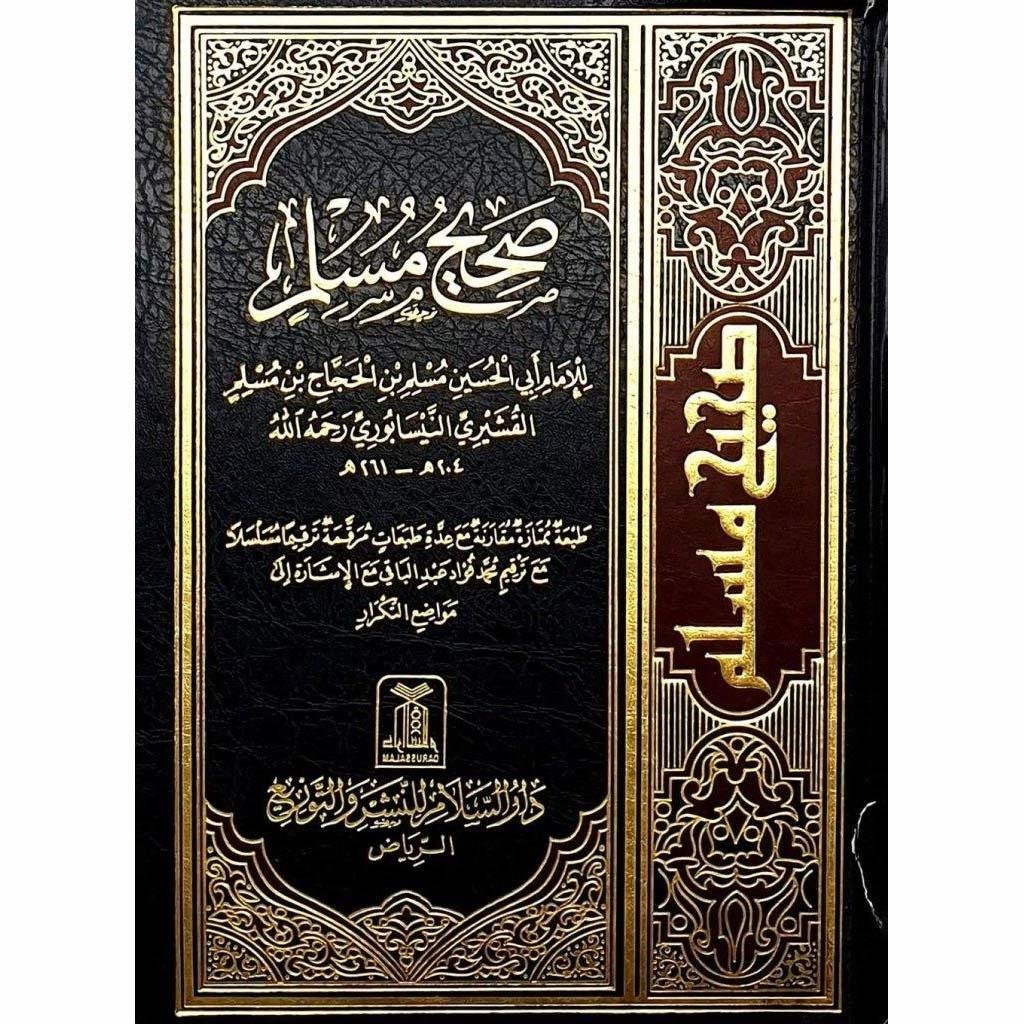 صَحِيحُ مُسْلِمٍ
لِلْإِمَامِ أَبِي الْحُسَيْنِ مُسْلِمِ بْنِ الْحَجَّاجِ بْنِ مُسْلِمٍ
القُشَيْرِيِّ النَّيْسَابُورِيِّ رَحِمَهُ اللَّهُ
٢٠٤هـ – ٢٦١هـ
طَبْعَةٌ مُمْتَازَةٌ مُقَارَنَةٌ مَعَ عِدَّةِ طَبَعَاتٍ مُرَقَّمَةٌ تَرْقِيمًا مُسَلْسَلًا
مَعَ تَرْقِيمِ مُحَمَّد فُؤَاد عَبْدِ البَاقِي مَعَ الإِشَارَةِ إِلَى
مَوَاضِعِ التَّكْرَارِ
دار السلام
DARUSSALAM
دَارُ السَّلَامِ لِلنَّشْرِ وَالتَّوْزِيعِ
الرِّيَاض
صحيح مسلم